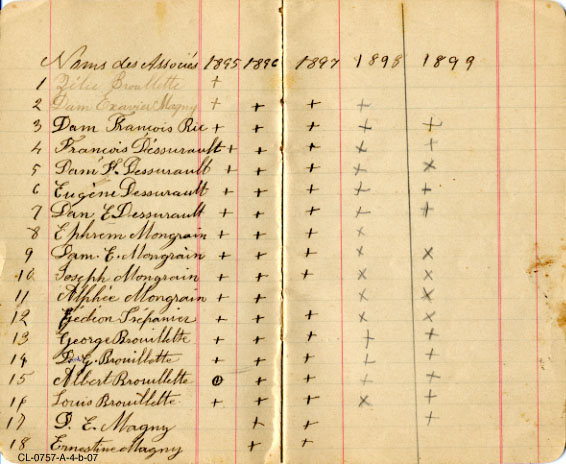 Noms des Associés 1895 1896 1897 1898 1899
1 Zélie Brouillette +
2 Dam Exavier Magny + + + +
3 Dam François Rie + + + + +
4 François Dessurault + + + + +
5 Dam F. Dessurault + + + + x
6 Eugène Dessurault + + + + +
7 Dam E. Dessurault + + + + +
8 Ephrem Mongrain + + + x
9 Dam. E. Mongrain + + + x x
10 Joseph Mongrain + + + x x
11 Alphée Mongrain + + x x
12 Gédéon Trépanier + + + x +
13 George Brouillette + + + + +
14 D. G. Brouillette + + + + +
15 Albert Brouillette + + + +
16 Louis Brouillette + + + x +
17 D. E. Magny + + +
18 Ernestine Magny + +
CL-0757-A-4-b-07